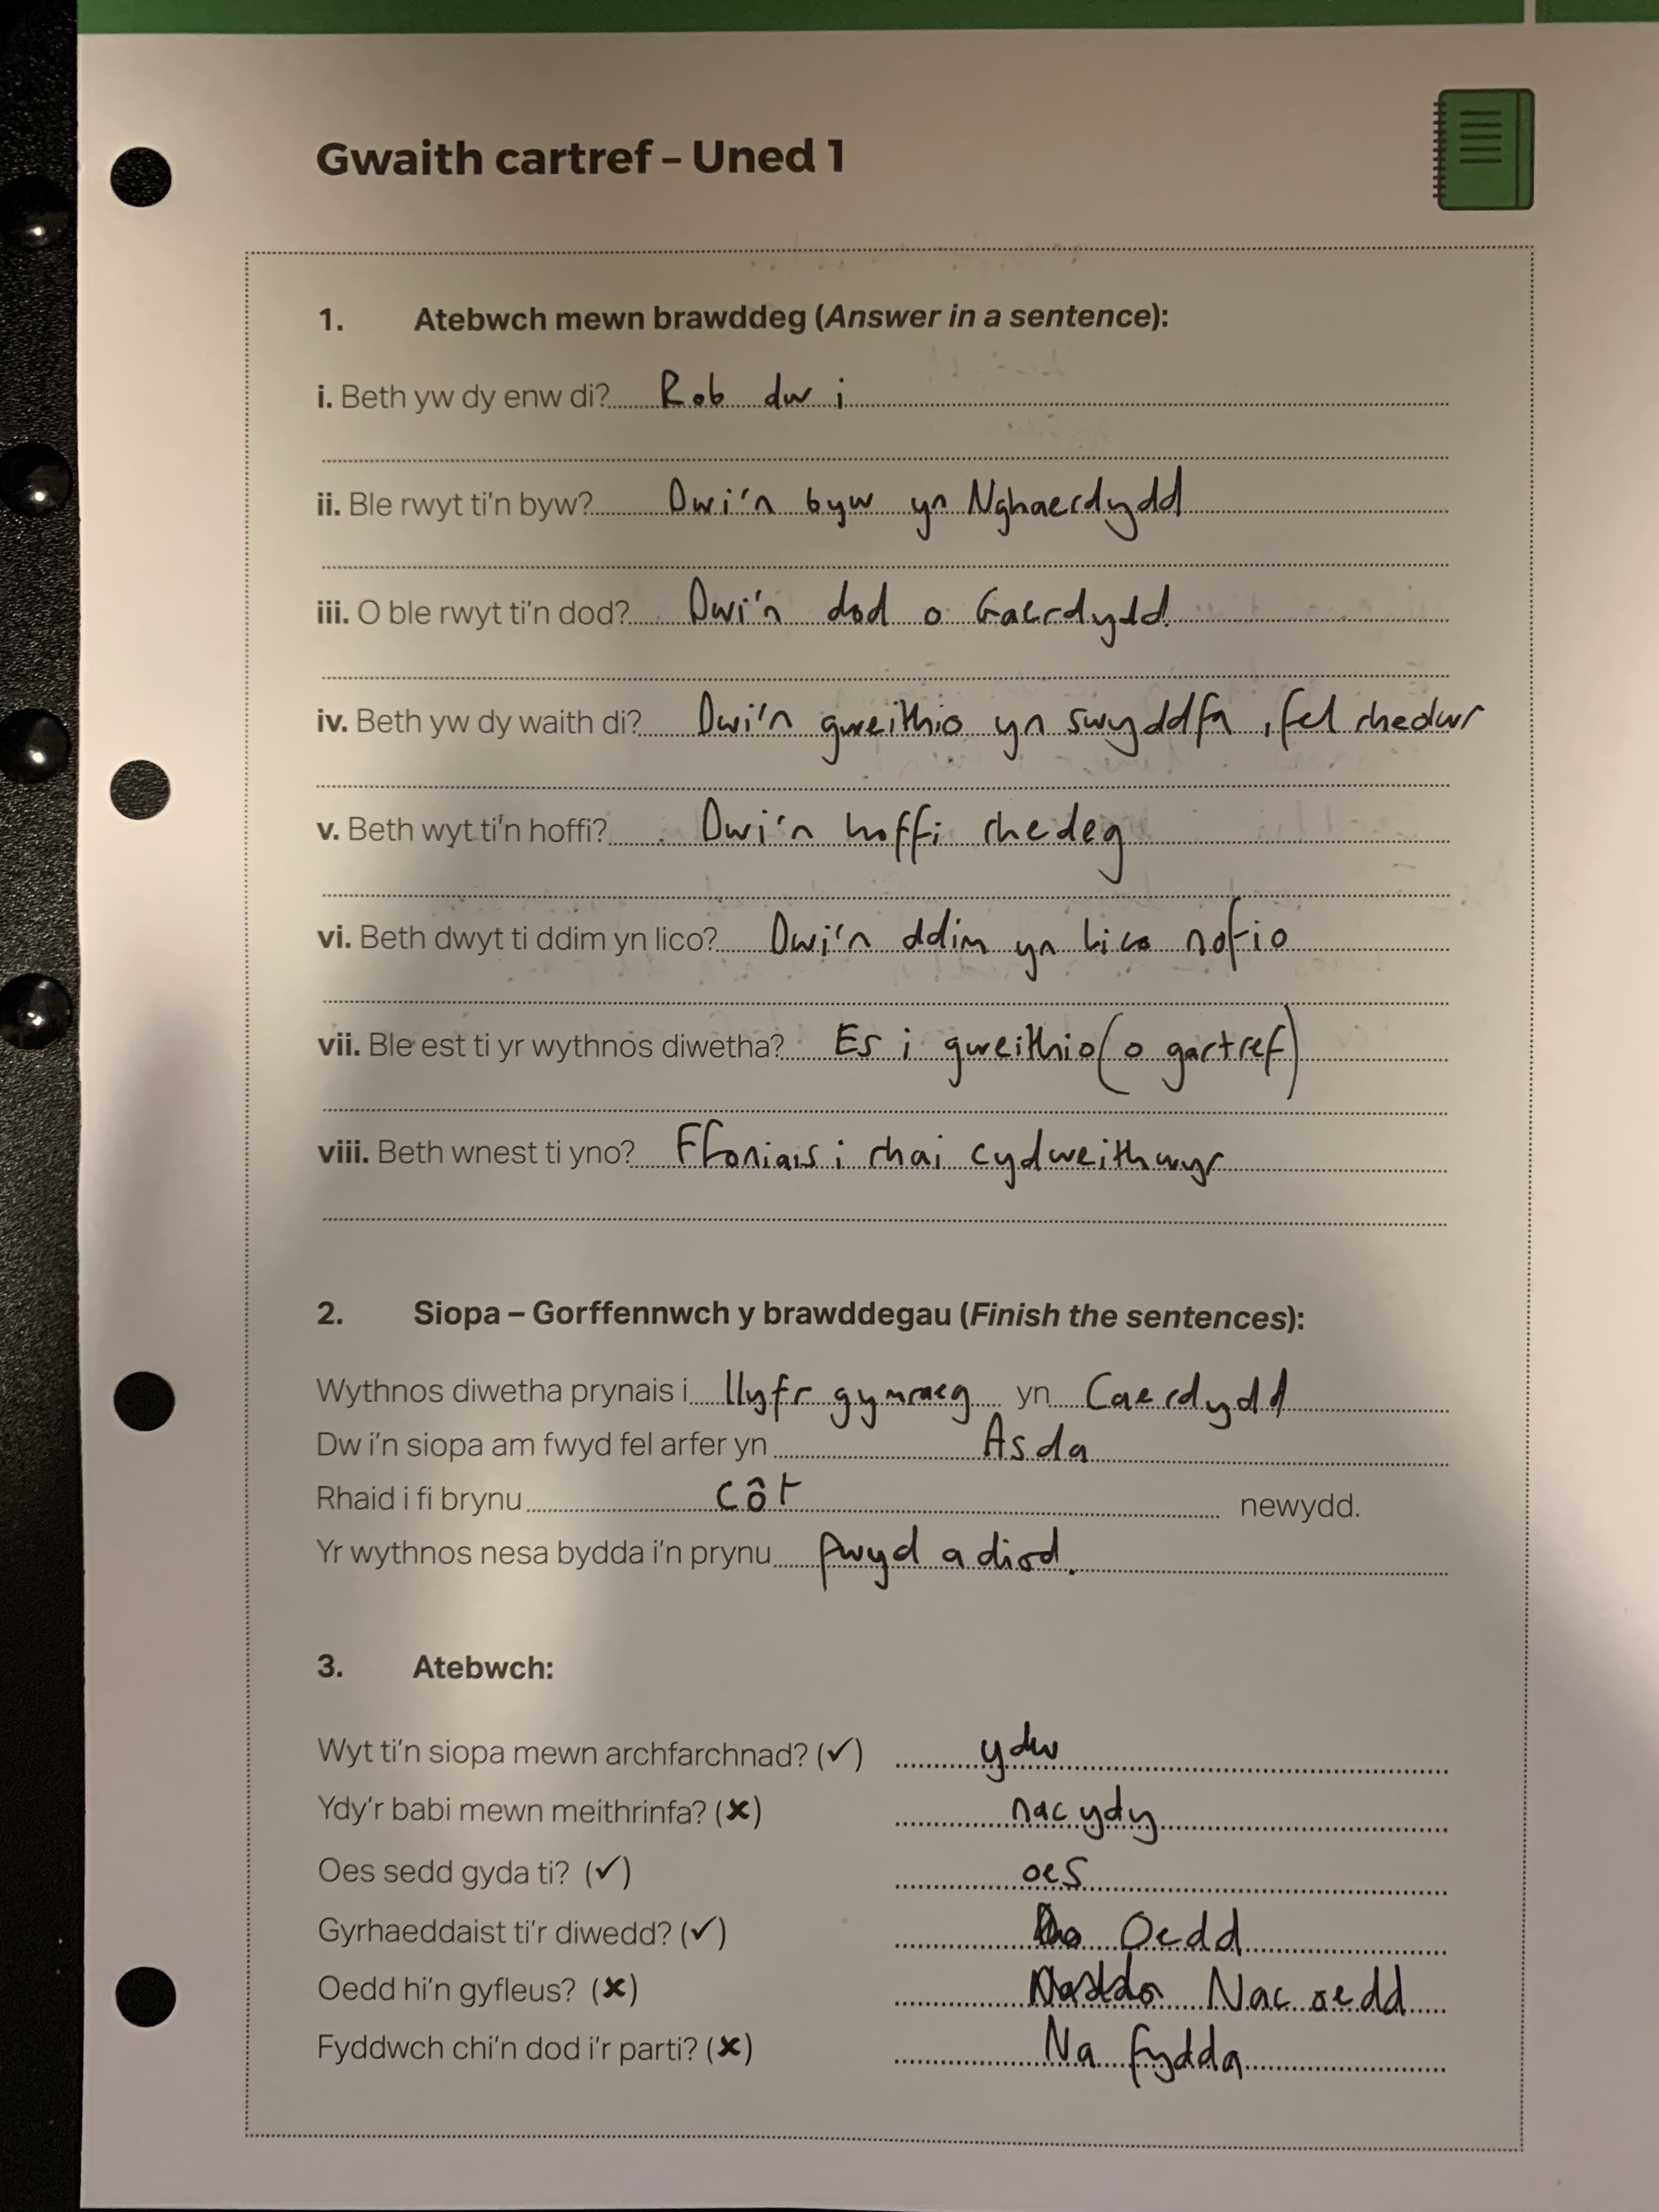 Gwaith cartref – Uned 1
1. Atebwch mewn brawddeg (Answer in a sentence):
i. Beth yw dy enw di? Rob dw i
ii. Ble rwyt ti'n byw? Dwi'n byw yn Nghaerdydd
iii. O ble rwyt ti'n dod? Dwi'n dod o Gaerdydd.
iv. Beth yw dy waith di? Dwi'n gweithio yn swyddfa, fel rhedwr
v. Beth wyt ti'n hoffi? Dwi'n hoffi rhedeg
vi. Beth dwyt ti ddim yn lico? Dwi'n ddim yn lico nofio
vii. Ble est ti yr wythnos diwetha? Es i gweithio (o gartref)
viii. Beth wnest ti yno? Ffoniais i rhai cydweithwyr
2. Siopa – Gorffennwch y brawddegau (Finish the sentences):
Wythnos diwetha prynais i llyfr gymraeg yn Caerdydd
Dw i'n siopa am fwyd fel arfer yn Asda
Rhaid i fi brynu côt newydd.
Yr wythnos nesa bydda i'n prynu fwyd a diod.
3. Atebwch:
Wyt ti'n siopa mewn archfarchnad? (✓) ydw
Ydy'r babi mewn meithrinfa? (✗) nac ydy
Oes sedd gyda ti? (✓) oes
Gyrhaeddaist ti'r diwedd? (✓) Oedd
Oedd hi'n gyfleus? (✗) Nac oedd
Fyddwch chi'n dod i'r parti? (✗) Na fydda